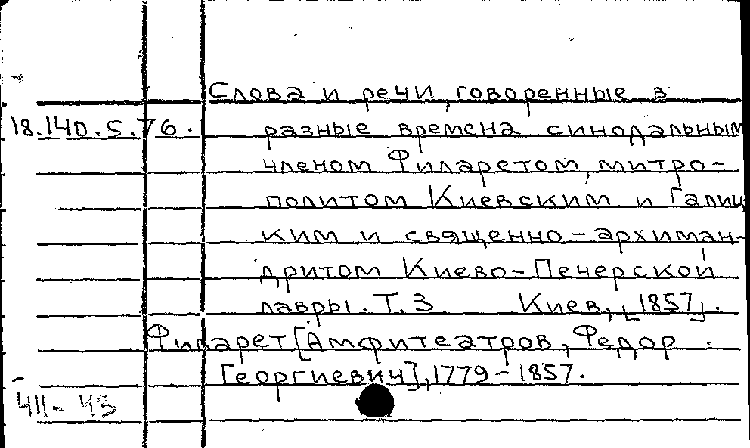 Слова и речи, говоренные в
18.140.5.76. разные времена синодальным
членом Филаретом, митро-
политом Киевским и Галиц
ким и священно-архиман-
дритом Киево-Печерской
лавры. Т. 3 Киев, [1857].
Филарет [Амфитеатров, Федор
Георгиевич], 1779-1857.
411-43